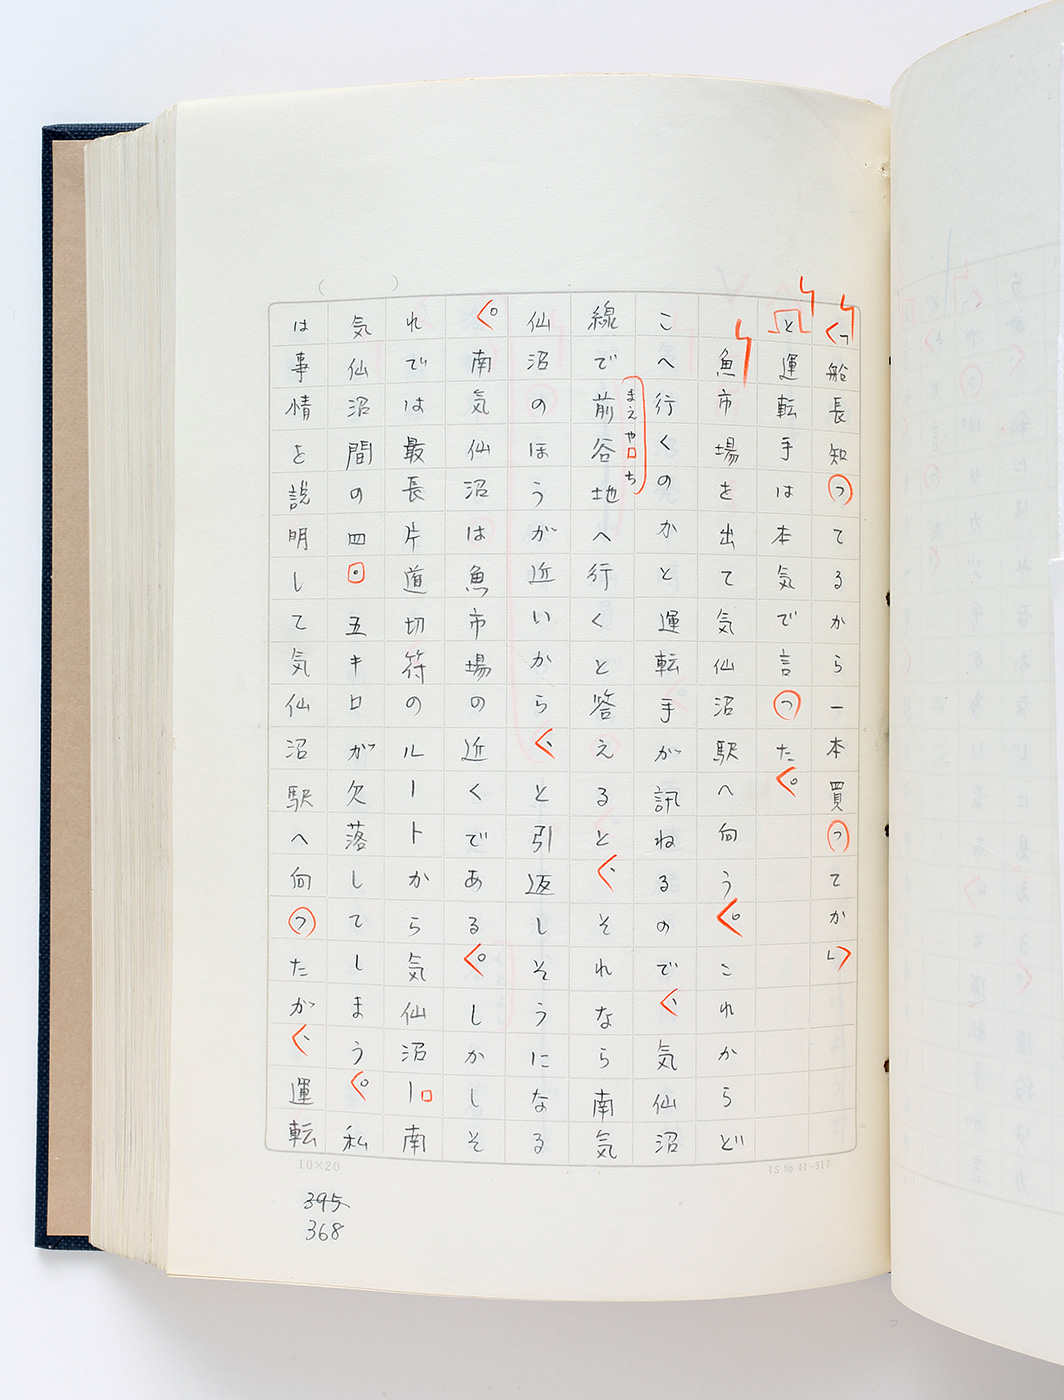 「船長知ってるから一本買ってか」
と運転手は本気で言った。
魚市場を出て気仙沼駅へ向う。これからど
こへ行くのかと運転手が訊ねるので、気仙沼
まえやち
線で前谷地へ行くと答えると、それなら南気
仙沼のほうが近いから、と引返しそうになる
。南気仙沼は魚市場の近くである。しかしそ
れでは最長片道切符のルートから気仙沼ー南
気仙沼間の四・五キロが欠落してしまう。私
は事情を説明して気仙沼駅へ向ったが、運転
10×20
395
368